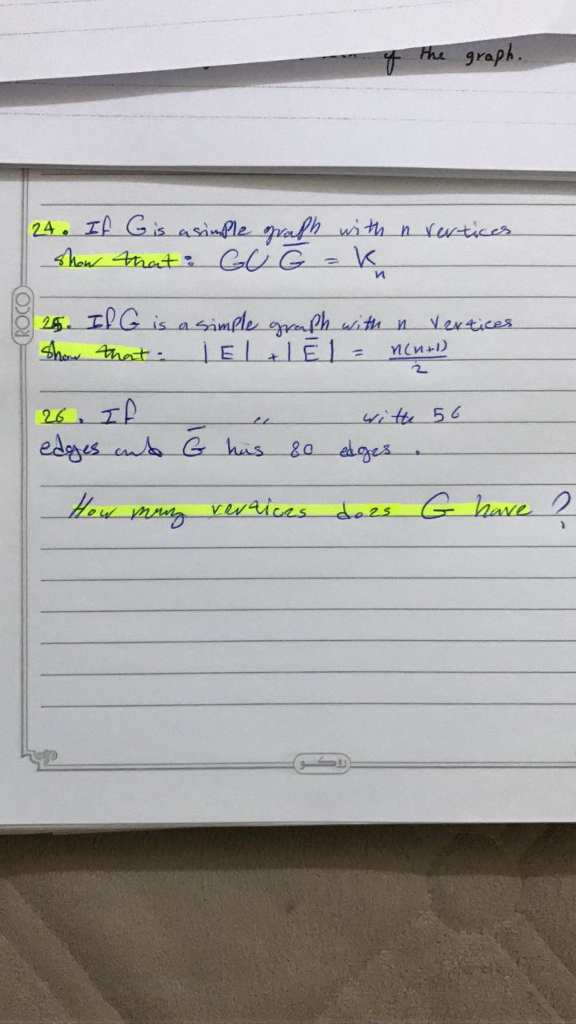 of the graph.
24. If G is a simple graph with n vertices
show that: G∪G̅ = Kₙ
25. If G is a simple graph with n vertices
show that: |E| + |E̅| = n(n+1)/2
26. If " with 56
edges and G̅ has 80 edges.
How many vertices does G have?
ROCO
روكو